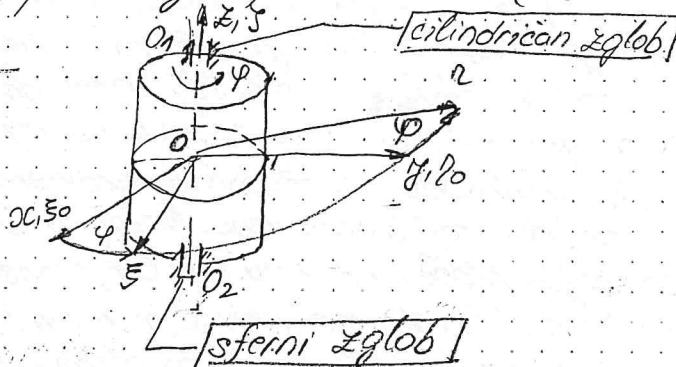 z, ζ
cilindričan zglob
O₁
φ
η
φ
O
y, η₀
x, ξ₀
φ
ξ
O₂
sferni zglob